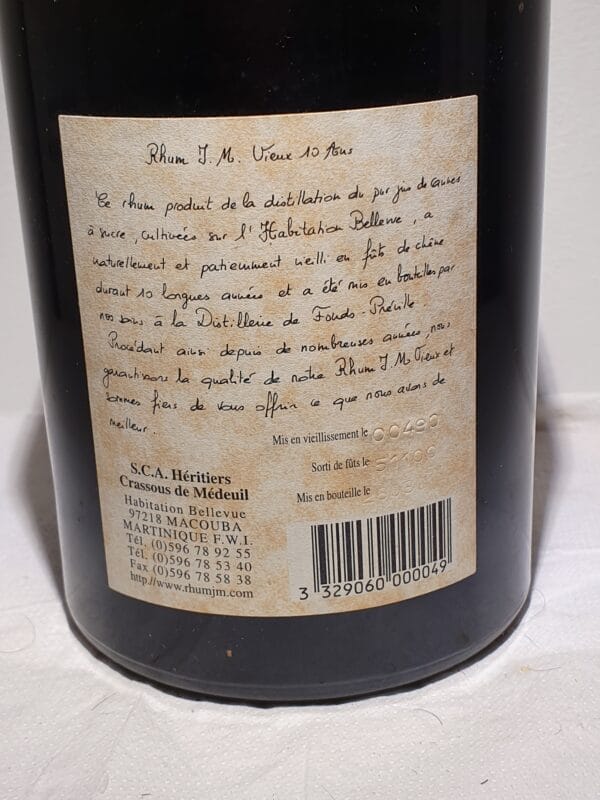 Rhum J. M. Vieux 10 Ans
Ce rhum produit de la distillation du pur jus de cannes
à sucre, cultivées sur l'Habitation Bellevue, a
naturellement et patiemment vieilli en fûts de chêne
durant 10 longues années et a été mis en bouteilles par
nos soins à la Distillerie de Fonds-Préville.
Procédant ainsi depuis de nombreuses années, nous
garantissons la qualité de notre Rhum J. M. Vieux et
sommes fiers de vous offrir ce que nous avons de
meilleur.
Mis en vieillissement le
Sorti de fûts le
Mis en bouteille le
S.C.A. Héritiers
Crassous de Médeuil
Habitation Bellevue
97218 MACOUBA
MARTINIQUE F.W.I.
Tél. (0)596 78 92 55
Tél. (0)596 78 53 40
Fax (0)596 78 58 38
http://www.rhumjm.com
3 329060 000049